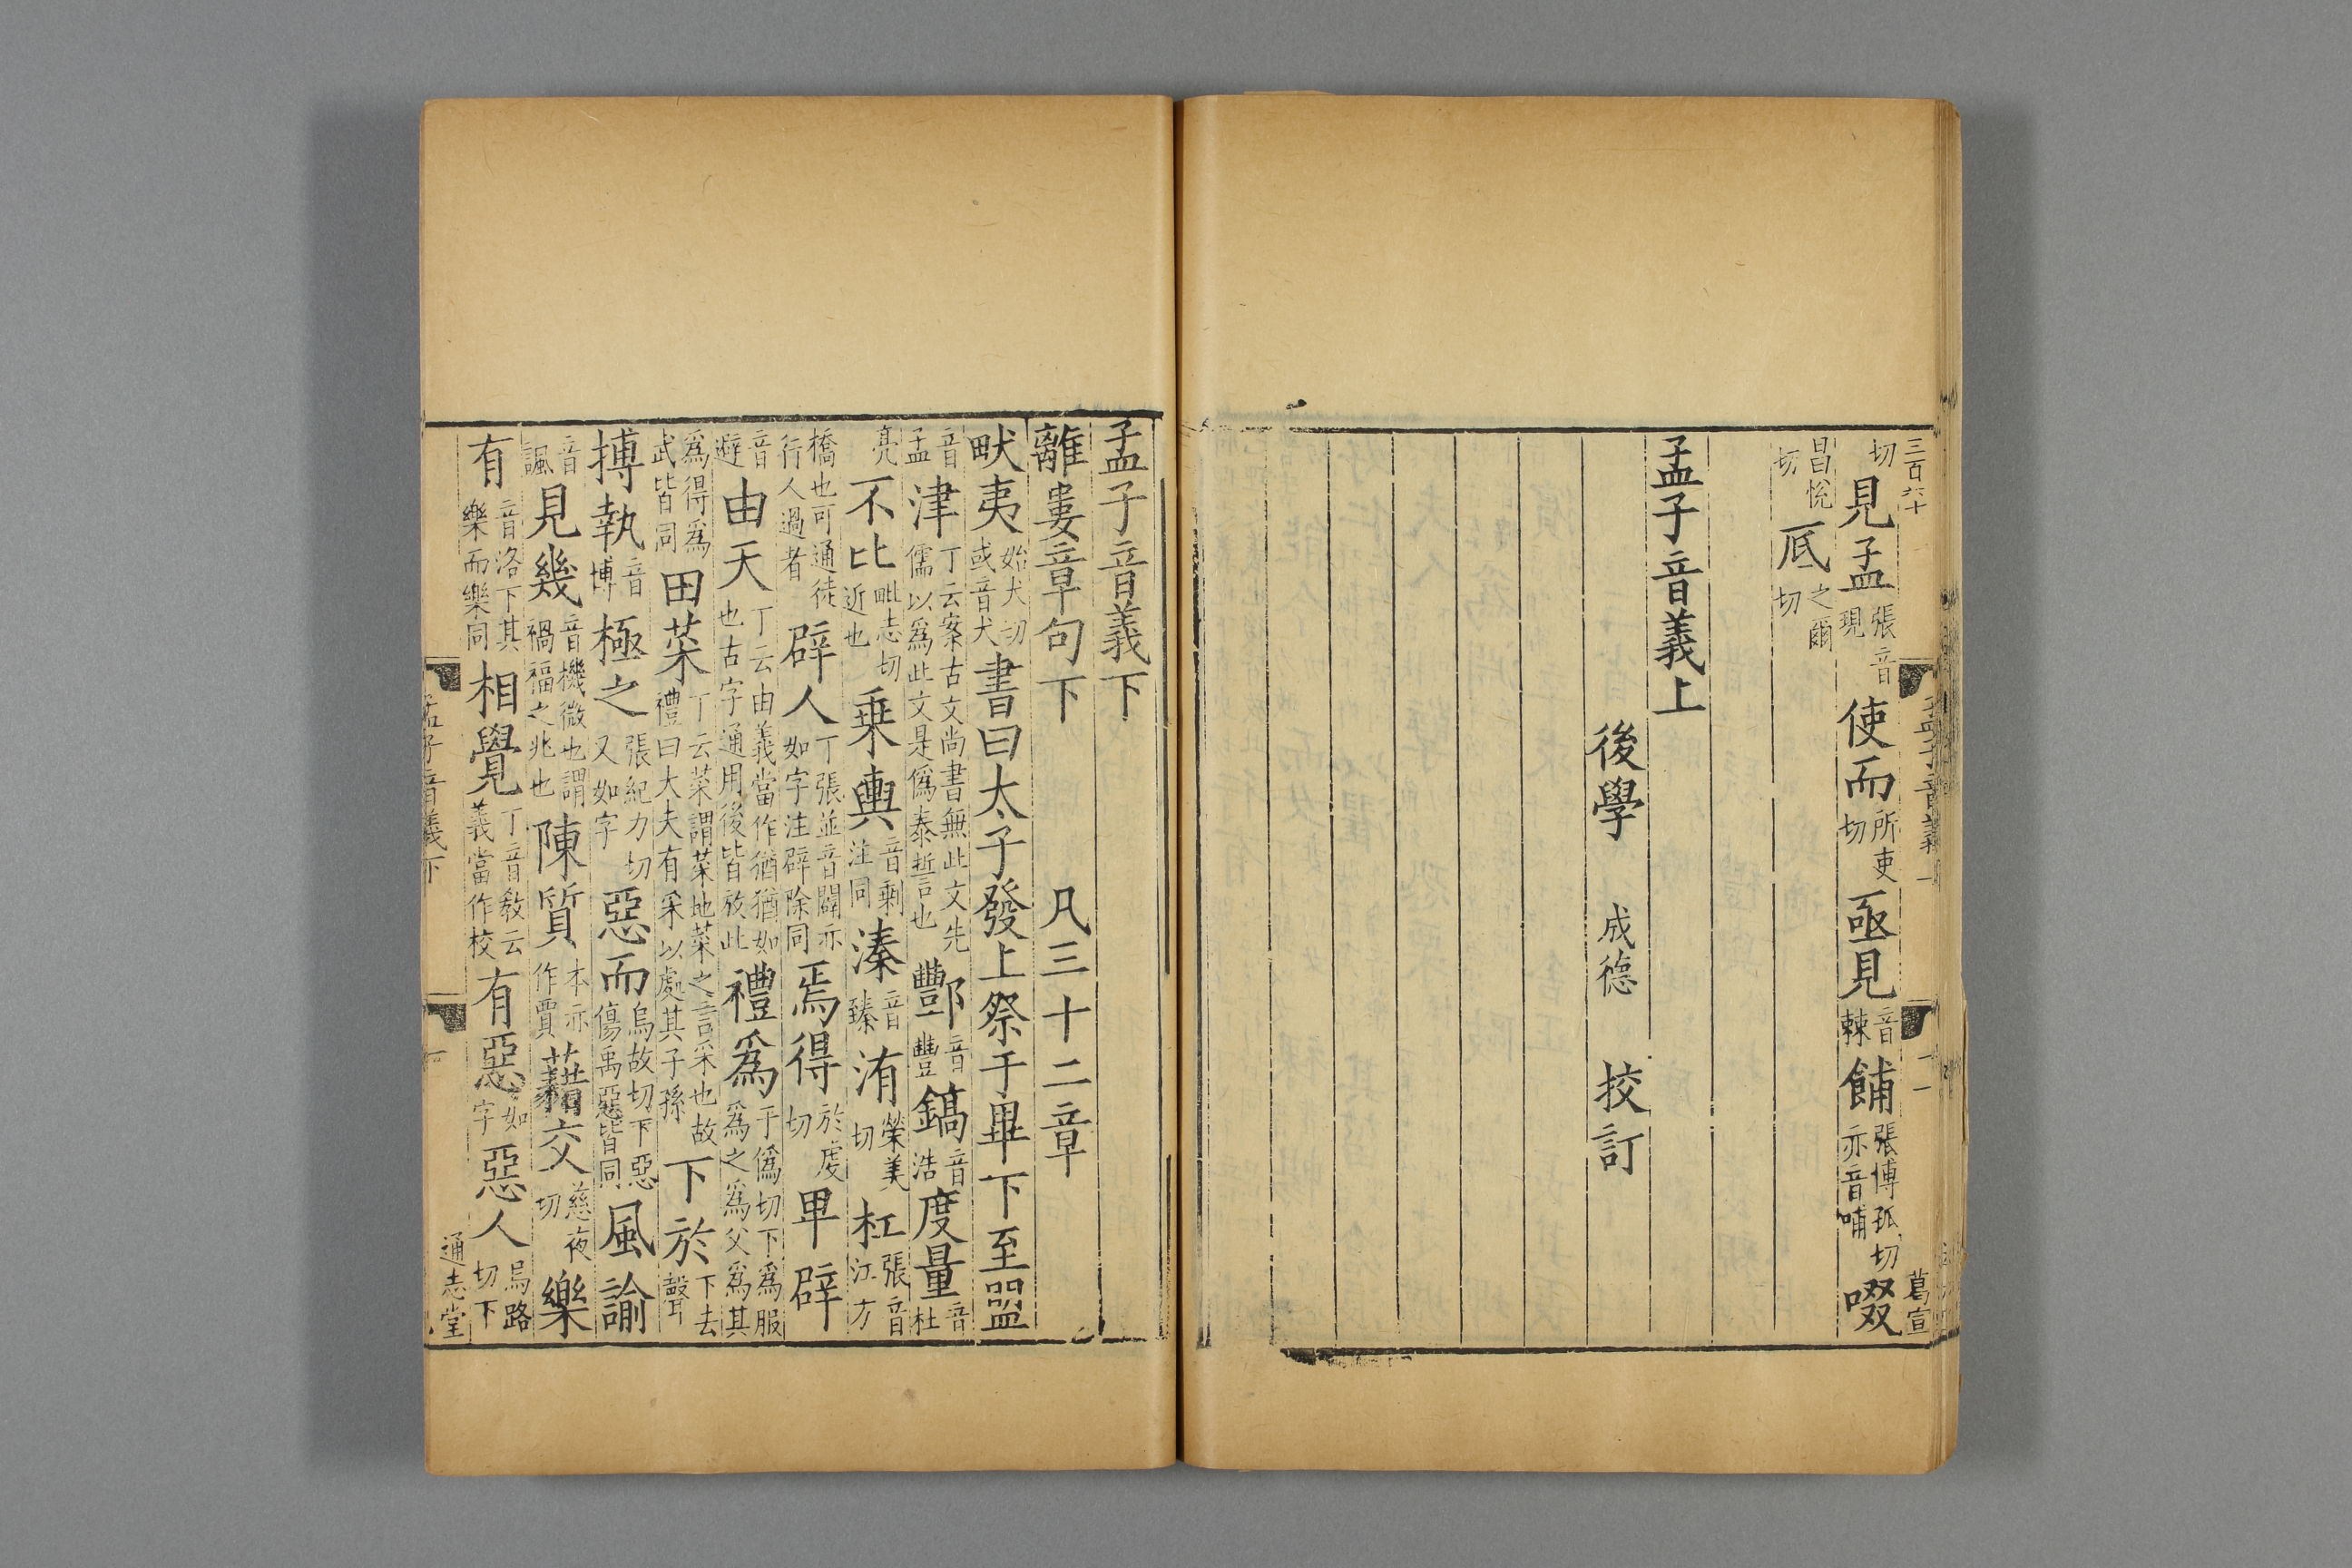 三百六十
孟子音義
十一
葛宣
切見孟張音現使而所吏切亟見音棘餔張博孤切亦音哺啜
昌悅切厎之爾切
孟子音義上
後學 成德 挍訂
孟子音義下
離婁章句下 凡三十二章
畎夷始犬切或音犬書曰太子發上祭于畢下至盟
音孟津丁云案古文尚書無此文先儒以為此文是偽泰誓也酆音豐鎬音浩度量音杜
亮不比毗志切近也乗輿音剩注同溱音臻洧榮美切杠張音江方
橋也可通徒行人過者辟人丁張並音闢亦如字注辟除同焉得於虔切畢辟
音避由天丁云由義當作猶猶如也古字通用後皆放此禮為于偽切下為服為之為父為其
為得為武皆同田菜丁云菜謂菜地菜之言采也故禮曰大夫有采以處其子孫下於下去聲
搏執音博極之張紀力切又如字惡而烏故切下惡傷禹惡皆同風諭
音諷見幾音機微也謂禍福之兆也陳質本亦作賈藉交慈夜切樂
有音洛下其樂而樂同相覺丁音教云義當作校有惡如字惡人烏路切下
孟子音義下
通志堂